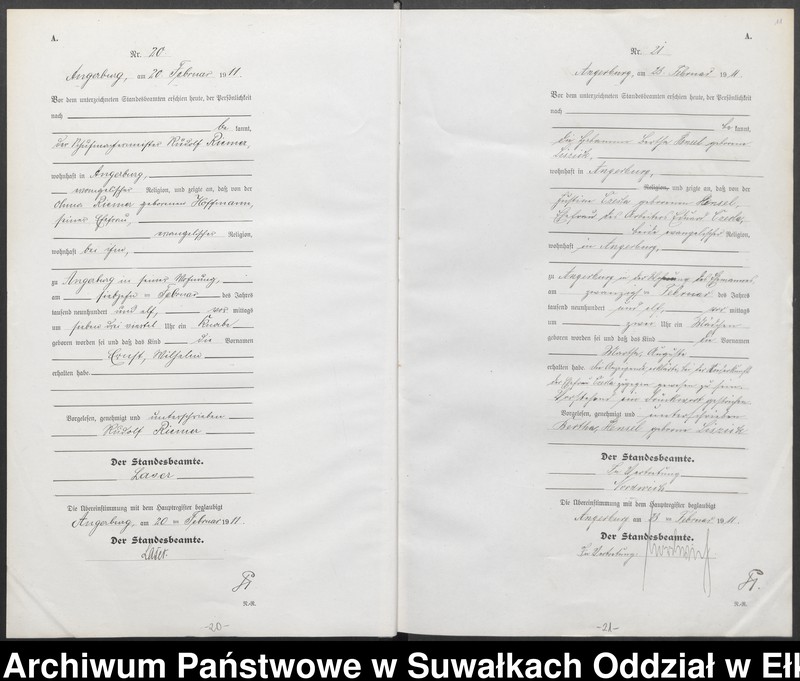 A.
Nr. 20
Angerburg, am 20 Februar 1911.
Vor dem unterzeichneten Standesbeamten erschien heute, der Persönlichkeit
nach
be kannt,
der Schuhmachermeister Rudolf Riemer,
wohnhaft in Angerburg,
evangelischer Religion, und zeigte an, daß von der
Riemer geborenen Hoffmann,
seiner Ehefrau,
evangelischer Religion,
wohnhaft bei ihm,
zu Angerburg in seiner Wohnung,
am siebzehn ten Februar des Jahres
tausend neunhundert und elf, vor mittags
um sieben drei viertel Uhr ein Knabe
geboren worden sei und daß das Kind die Vornamen
Ernst, Wilhelm
erhalten habe
Vorgelesen, genehmigt und unterschrieben
Rudolf Riemer
Der Standesbeamte.
Laser
Die Übereinstimmung mit dem Hauptregister beglaubigt
Angerburg, am 20 ten Februar 1911.
Der Standesbeamte.
Laser.
N.-R.
-20-
11
A.
Nr. 21
Angerburg, am Februar 1911.
Vor dem unterzeichneten Standesbeamten erschien heute, der Persönlichkeit
nach
be kannt,
die Hebamme Bertha Hensel geborene
wohnhaft in Angerburg,
Religion, und zeigte an, daß von der
Justine geborenen Hensel,
Ehefrau des Arbeiters Eduard
beide evangelischer Religion,
wohnhaft in Angerburg,
zu Angerburg in der Wohnung des Ehemannes
am zwanzig ten Februar des Jahres
tausend neunhundert und elf, vor mittags
um zwei Uhr ein Mädchen
geboren worden sei und daß das Kind die Vornamen
Martha, Auguste
erhalten habe. Die Anzeigende erklärte, bei der Niederkunft
der Ehefrau zugegen gewesen zu sein.
Vorstehend ein Druckwort gestrichen
Vorgelesen, genehmigt und unterschrieben
Bertha Hensel geborene
Der Standesbeamte.
In Vertretung
Die Übereinstimmung mit dem Hauptregister beglaubigt
Angerburg am ten Februar 1911.
Der Standesbeamte.
In Vertretung:
N.-R.
-21-
Archiwum Państwowe w Suwałkach Oddział w Ełk